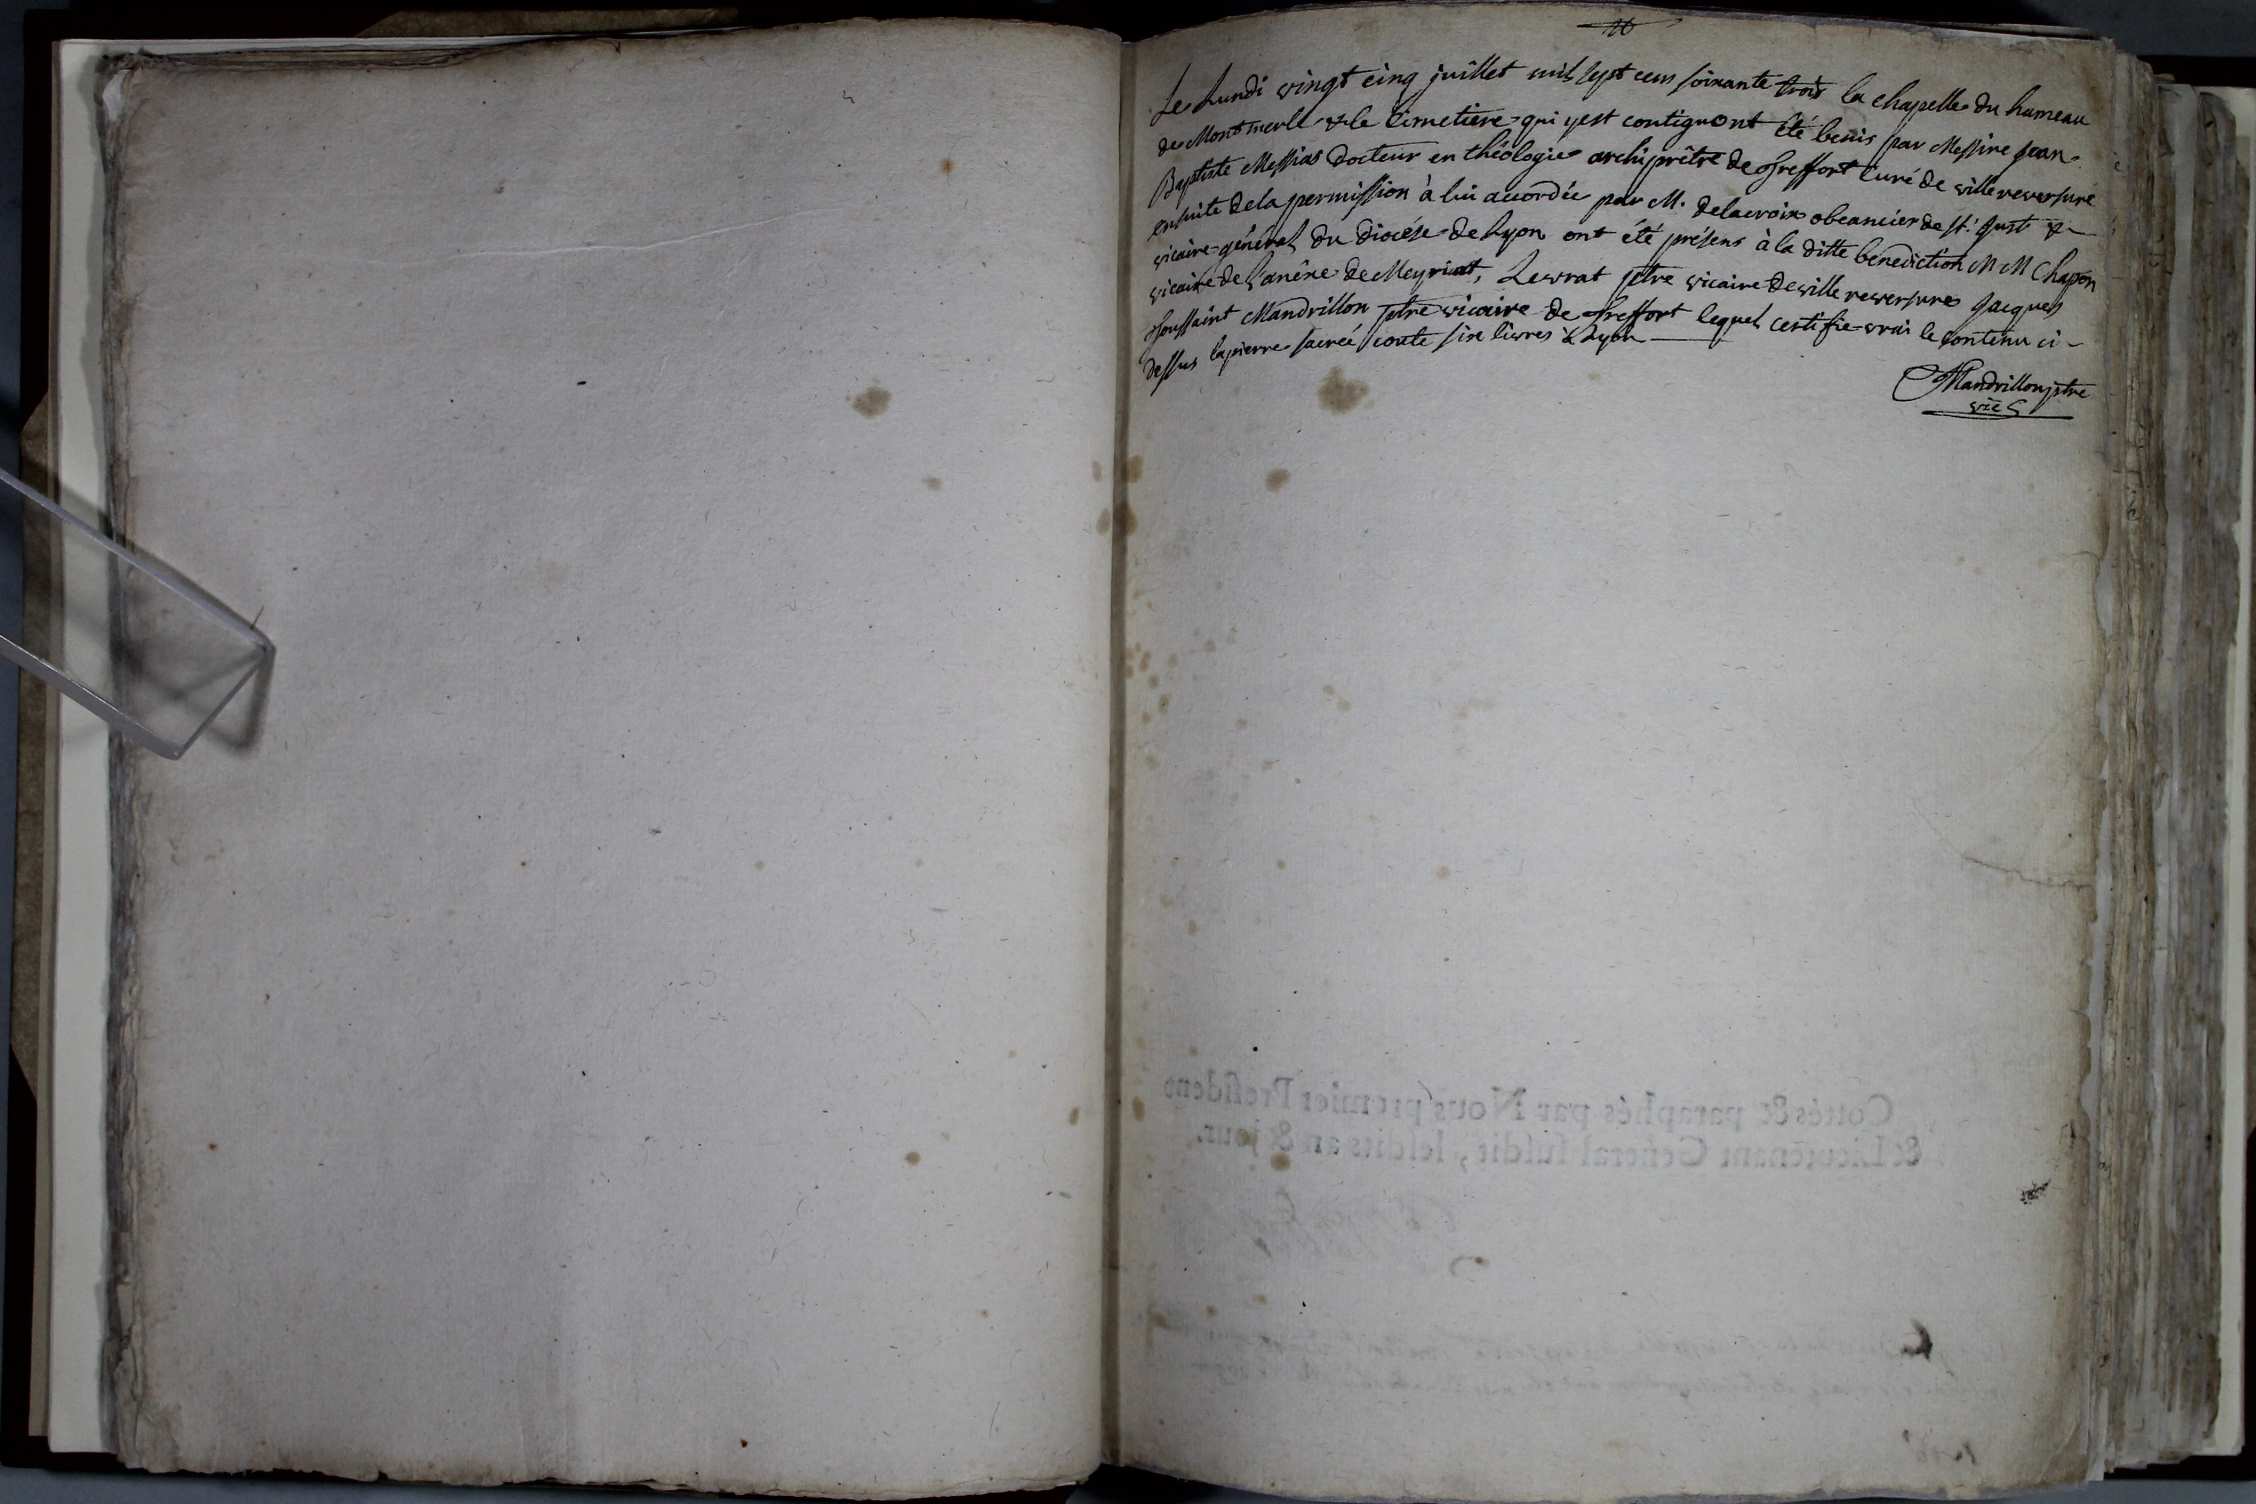 Le Lundi vingt cinq juillet mil sept cens soixante trois la chapelle du hameau
de Montmerle & le Cimetiere qui y est contigu ont été benis par Messire Jean-
Baptiste Messias Docteur en théologie archiprêtre de Treffort Curé de villereversure
ensuite de la permission à lui accordée par M. delacroix obeancier de st. Just &
vicaire-général du Diocése de Lyon ont été présens à la ditte bénédiction MM Chapon
vicaire de l'anéxe de Meyriat, Levrat ptre vicaire de villereversure Jacques
Toussaint Mandrillon ptre vicaire de Treffort lequel certifie vrai le contenu ci-
dessus la pierre sacrée coute six livres à Lyon
Mandrillon ptre
vic
Cottés & paraphés par Nous premier President
& Lieutenant Général susdit, lesdits an & jour.